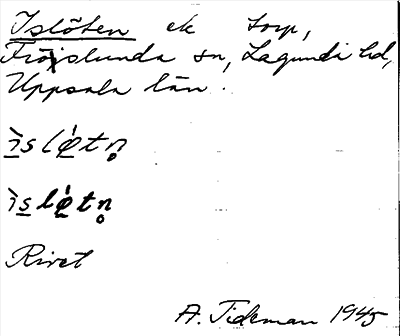 Islöten ek torp,
Fröjslunda sn, Lagunda hd,
Uppsala län.
ìslø̀tn̥
ìslø̀tn̥
Rivet
A. Tideman 1945